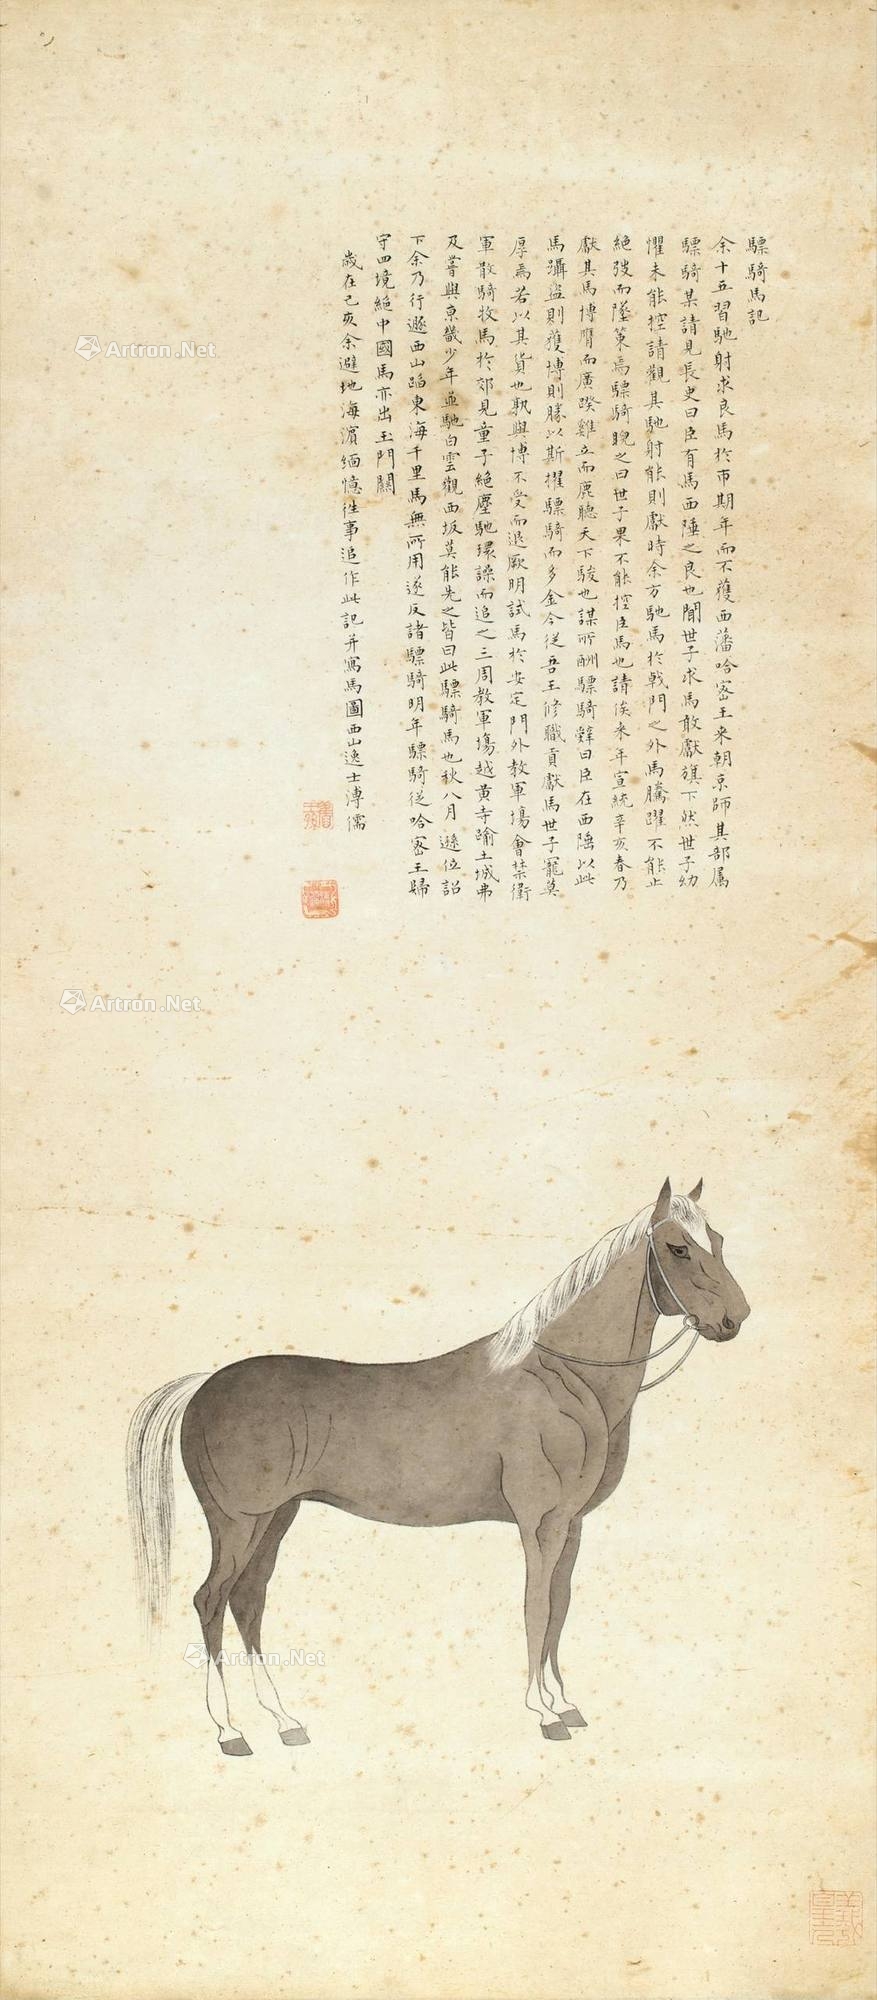 驃騎馬記
余十五習馳射求良馬於市期年而不獲西藩哈密王來朝京師其部屬
驃騎某請見長史曰臣有馬西陲之良也聞世子求馬敢獻旗下然世子幼
懼未能控請觀其馳射能則獻時余方馳馬於戟門之外馬騰躍不能止
絕弢而墜策焉驃騎睨之曰世子果不能控臣馬也請俟來年宣統辛亥春乃
獻其馬博膺而廣睽雞立而鹿聽天下駿也謀所酬驃騎辭曰臣在西陲以此
馬躡盜則獲博則勝以斯擢驃騎而多金今從吾王修職貢獻馬世子寵莫
厚焉若以其貨也孰與博不受而退厥明試馬於安定門外教軍場會禁衛
軍散騎牧馬於郊見童子絕塵馳環譟而追之三周教軍場越黃寺踰土城弗
及嘗與京畿少年並馳白雲觀西坂莫能先之皆曰此驃騎馬也秋八月遜位詔
下余乃行遯西山蹈東海千里馬無所用遂反諸驃騎明年驃騎從哈密王歸
守四境絕中國馬亦出玉門關
歲在己亥余避地海濱緬憶往事追作此記并寫馬圖西山逸士溥儒
Artron.Net
Artron.Net
Artron.Net
Artron.Net